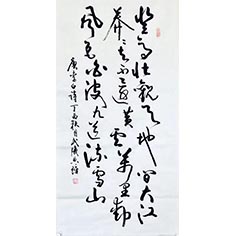 登高壯觀天地間大江
茫茫去不還黃雲萬里動
風色白波九道流雪山
唐李白詩丁酉秋月